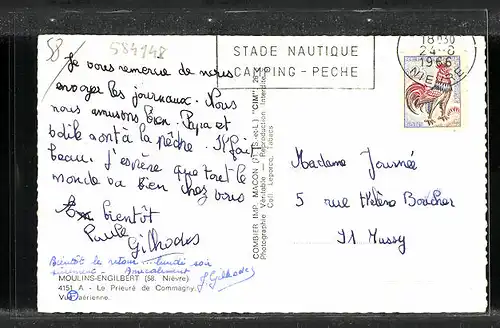 58
584148
Je vous remercie de nous
envoyer les journaux. Nous
nous amusons bien. Papa et
sont à la pêche. Il fait
beau. J'espère que tout le
monde va bien chez vous
bientôt
Paule
Gilhodes
Bientôt le retour... lundi soir
sûrement - Amicalement
J. Gilhodes
MOULINS-ENGILBERT (58. Nièvre)
4151 A - Le Prieuré de Commagny.
Vue aérienne.
COMBIER IMP. MACON (S.-ET-L.) "CIM"
Photographie Véritable - Reproduction Interdite
Coll. Leporcq, Tabacs
STADE NAUTIQUE
CAMPING - PECHE
18H30
24-8
1966
NIEVRE
Madame Journée
5 rue Hélène Boucher
Mussy